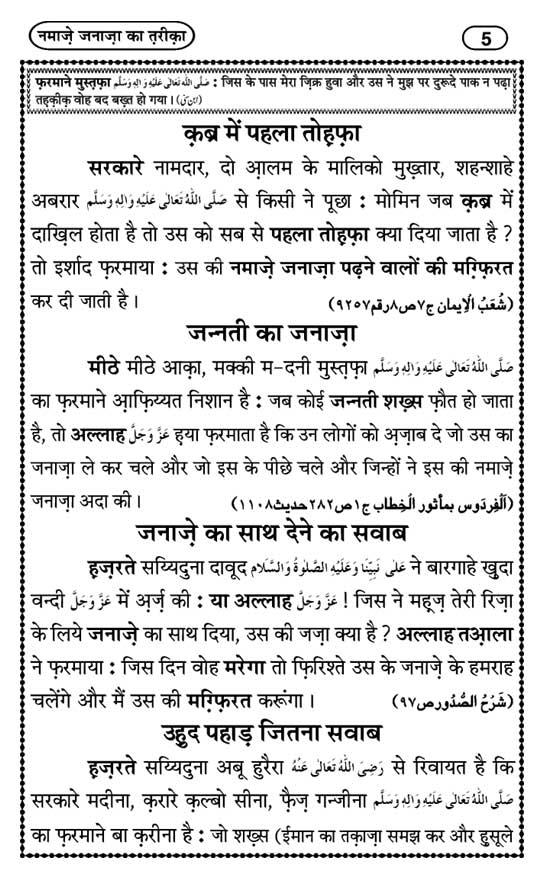 नमाज़े जनाज़ा का त़रीक़ा
5
फ़रमाने मुस्त़फ़ा صَلَّى اللهُ تَعَالٰى عَلَيْهِ وَاٰلِهٖ وَسَلَّم : जिस के पास मेरा ज़िक्र हुवा और उस ने मुझ पर दुरूदे पाक न पढ़ा
तह़क़ीक़ वोह बद बख़्त हो गया । (ابن سنی)
क़ब्र में पहला तोह़फ़ा
सरकारे नामदार, दो आ़लम के मालिको मुख़्तार, शहन्शाहे
अबरार صَلَّى اللهُ تَعَالٰى عَلَيْهِ وَاٰلِهٖ وَسَلَّم से किसी ने पूछा : मोमिन जब क़ब्र में
दाख़िल होता है तो उस को सब से पहला तोह़फ़ा क्या दिया जाता है ?
तो इर्शाद फ़रमाया : उस की नमाज़े जनाज़ा पढ़ने वालों की मग़्फ़िरत
कर दी जाती है । (شُعَبُ الْاِيمان ج٧ص٨رقم٩٢٥٧)
जन्नती का जनाज़ा
मीठे मीठे आक़ा, मक्की म-दनी मुस्त़फ़ा صَلَّى اللهُ تَعَالٰى عَلَيْهِ وَاٰلِهٖ وَسَلَّم
का फ़रमाने आ़फ़िय्यत निशान है : जब कोई जन्नती शख़्स फ़ौत हो जाता
है, तो अल्लाह عَزَّ وَجَلَّ ह़या फ़रमाता है कि उन लोगों को अ़ज़ाब दे जो उस का
जनाज़ा ले कर चले और जो इस के पीछे चले और जिन्हों ने इस की नमाज़े
जनाज़ा अदा की । (اَلْفِردَوس بمأثور الْخِطاب ج١ص٢٨٢حدیث١١٠٨)
जनाज़े का साथ देने का सवाब
ह़ज़रते सय्यिदुना दावूद عَلٰى نَبِيِّنَا وَعَلَيْهِ الصَّلٰوةُ وَالسَّلَام ने बारगाहे ख़ुदा
वन्दी عَزَّ وَجَلَّ में अ़र्ज़ की : या अल्लाह عَزَّ وَجَلَّ ! जिस ने मह़ज़ तेरी रिज़ा
के लिये जनाज़े का साथ दिया, उस की जज़ा क्या है ? अल्लाह तआ़ला
ने फ़रमाया : जिस दिन वोह मरेगा तो फ़िरिश्ते उस के जनाज़े के हमराह
चलेंगे और मैं उस की मग़्फ़िरत करूंगा । (شَرْحُ الصُّدُور ص٩٧)
उह़ुद पहाड़ जितना सवाब
ह़ज़रते सय्यिदुना अबू हुरैरा رَضِىَ اللهُ تَعَالٰى عَنْهُ से रिवायत है कि
सरकारे मदीना, क़रारे क़ल्बो सीना, फ़ैज़ गन्जीना صَلَّى اللهُ تَعَالٰى عَلَيْهِ وَاٰلِهٖ وَسَلَّم
का फ़रमाने बा क़रीना है : जो शख़्स (ईमान का तक़ाज़ा समझ कर और ह़ुसूले